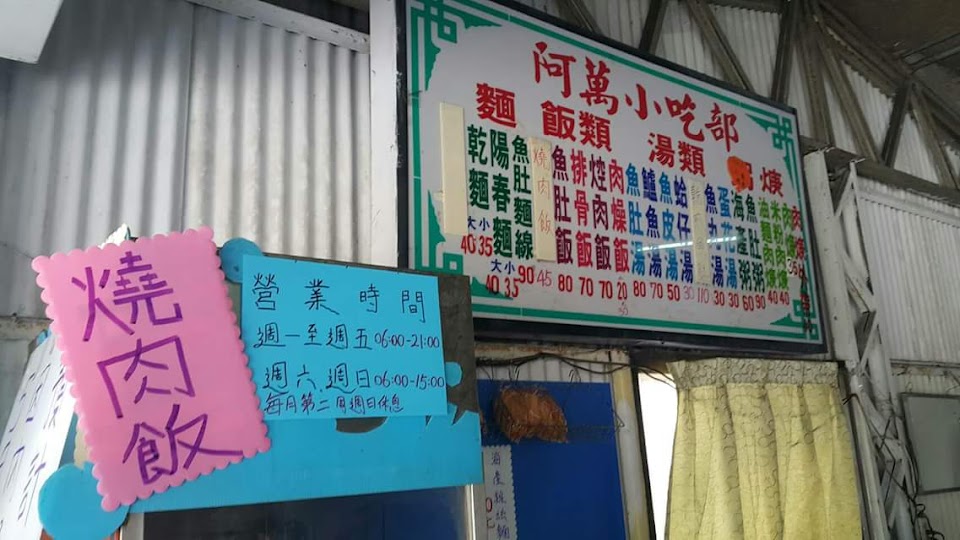 阿萬小吃部
麵 飯類 湯類 焿
乾麵 大小 40 35
陽春麵 大小 40 35
魚肚麵線 90
燒肉飯 45
魚肚飯 80
排骨飯 70
焢肉飯 70
肉燥飯 20
魚肚湯 80
鱸魚湯 70
魚皮湯 50
蛤仔湯 30
110
魚丸湯 30
蛋花湯 30
海產粥 60
魚肚粥 90
油麵肉焿 40
米粉肉焿 40
燒肉飯
營業時間
週一至週五 06:00-21:00
週六、週日 06:00-15:00
每月第二周週日休息
海產